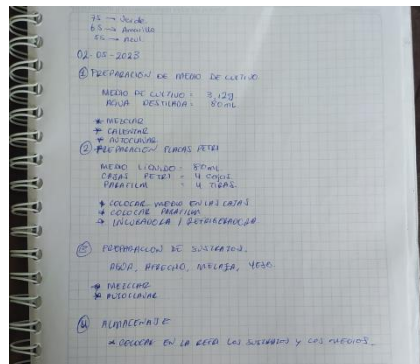 75 → Verde
65 → Amarillo
55 → Azul
02-05-2023
① PREPARACIÓN DE MEDIO DE CULTIVO
MEDIO DE CULTIVO = 3,12g
AGUA DESTILADA = 80mL
* MEZCLAR
* CALENTAR
* AUTOCLAVAR
② PREPARACIÓN PLACAS PETRI
MEDIO LÍQUIDO = 80mL
CAJAS PETRI = 4 CAJAS
PARAFILM = 4 TIRAS
* COLOCAR MEDIO EN LAS CAJAS
* COLOCAR PARAFILM
→ INCUBADORA / REFRIGERADORA
③ PREPARACIÓN DE SUSTRATOS.
AGUA, AFRECHO, MELAZA, YESO
* MEZCLAR
* AUTOCLAVAR
④ ALMACENAJE
* COLOCAR EN LA REFRI LOS SUSTRATOS Y LOS MEDIOS.